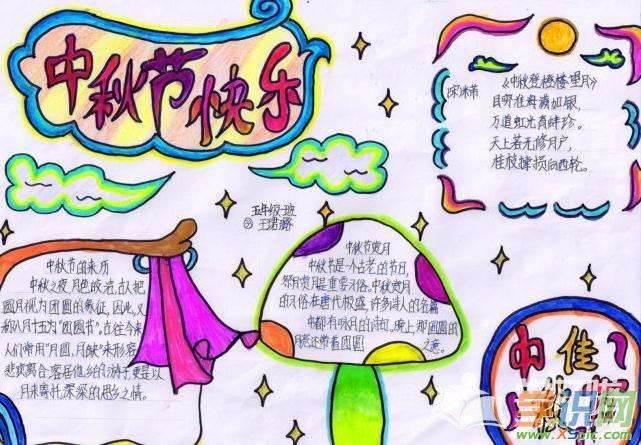 中秋节快乐
《中秋登楼望月》
宋 米芾
目穷淮海满如银,
万道虹光育蚌珍。
天上若无修月户,
桂枝撑损向西轮。
五年级一班
中秋节的来历
中秋之夜,月色皎洁,古人把
圆月视为团圆的象征,因此,又
称八月十五为“团圆节”。古往今来,
人们常用“月圆、月缺”来形容
悲欢离合,客居他乡的游子,更是以
月来寄托深深的思乡之情。
中秋节赏月
中秋节是一个古老的节日,
祭月赏月是重要习俗。中秋赏月
的习俗在唐代极盛,许多诗人的名篇
中都有咏月的诗句,晚上那圆圆的
月亮还带着团圆之意。
中
佳
学识网
www.xspic.com